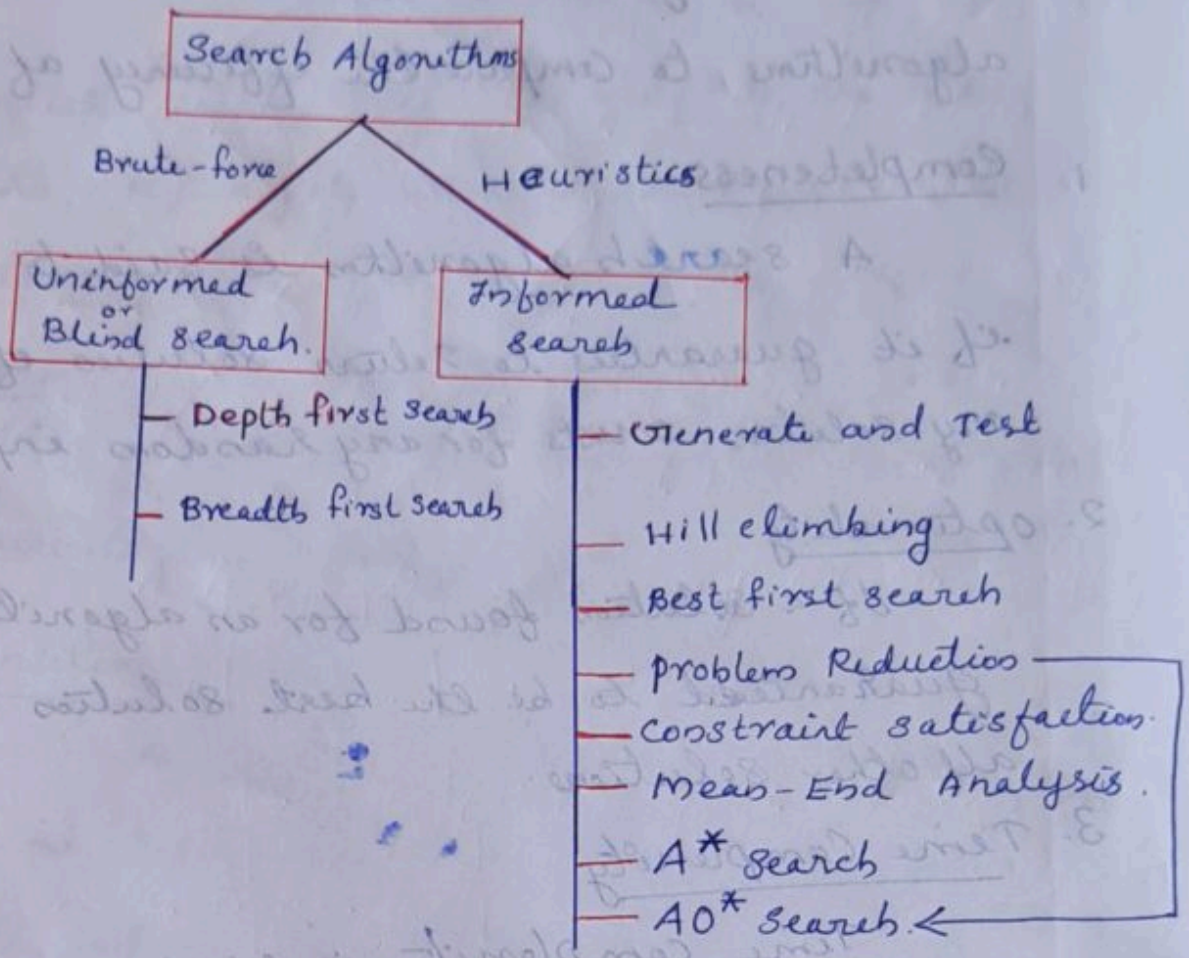 Search Algorithms
Brute-force
Heuristics
Uninformed
or
Blind search.
Informed
search
Depth first search
Breadth first search
Generate and Test
Hill climbing
Best first search
Problem Reduction
Constraint satisfaction.
Mean-End Analysis.
A* search
AO* search.